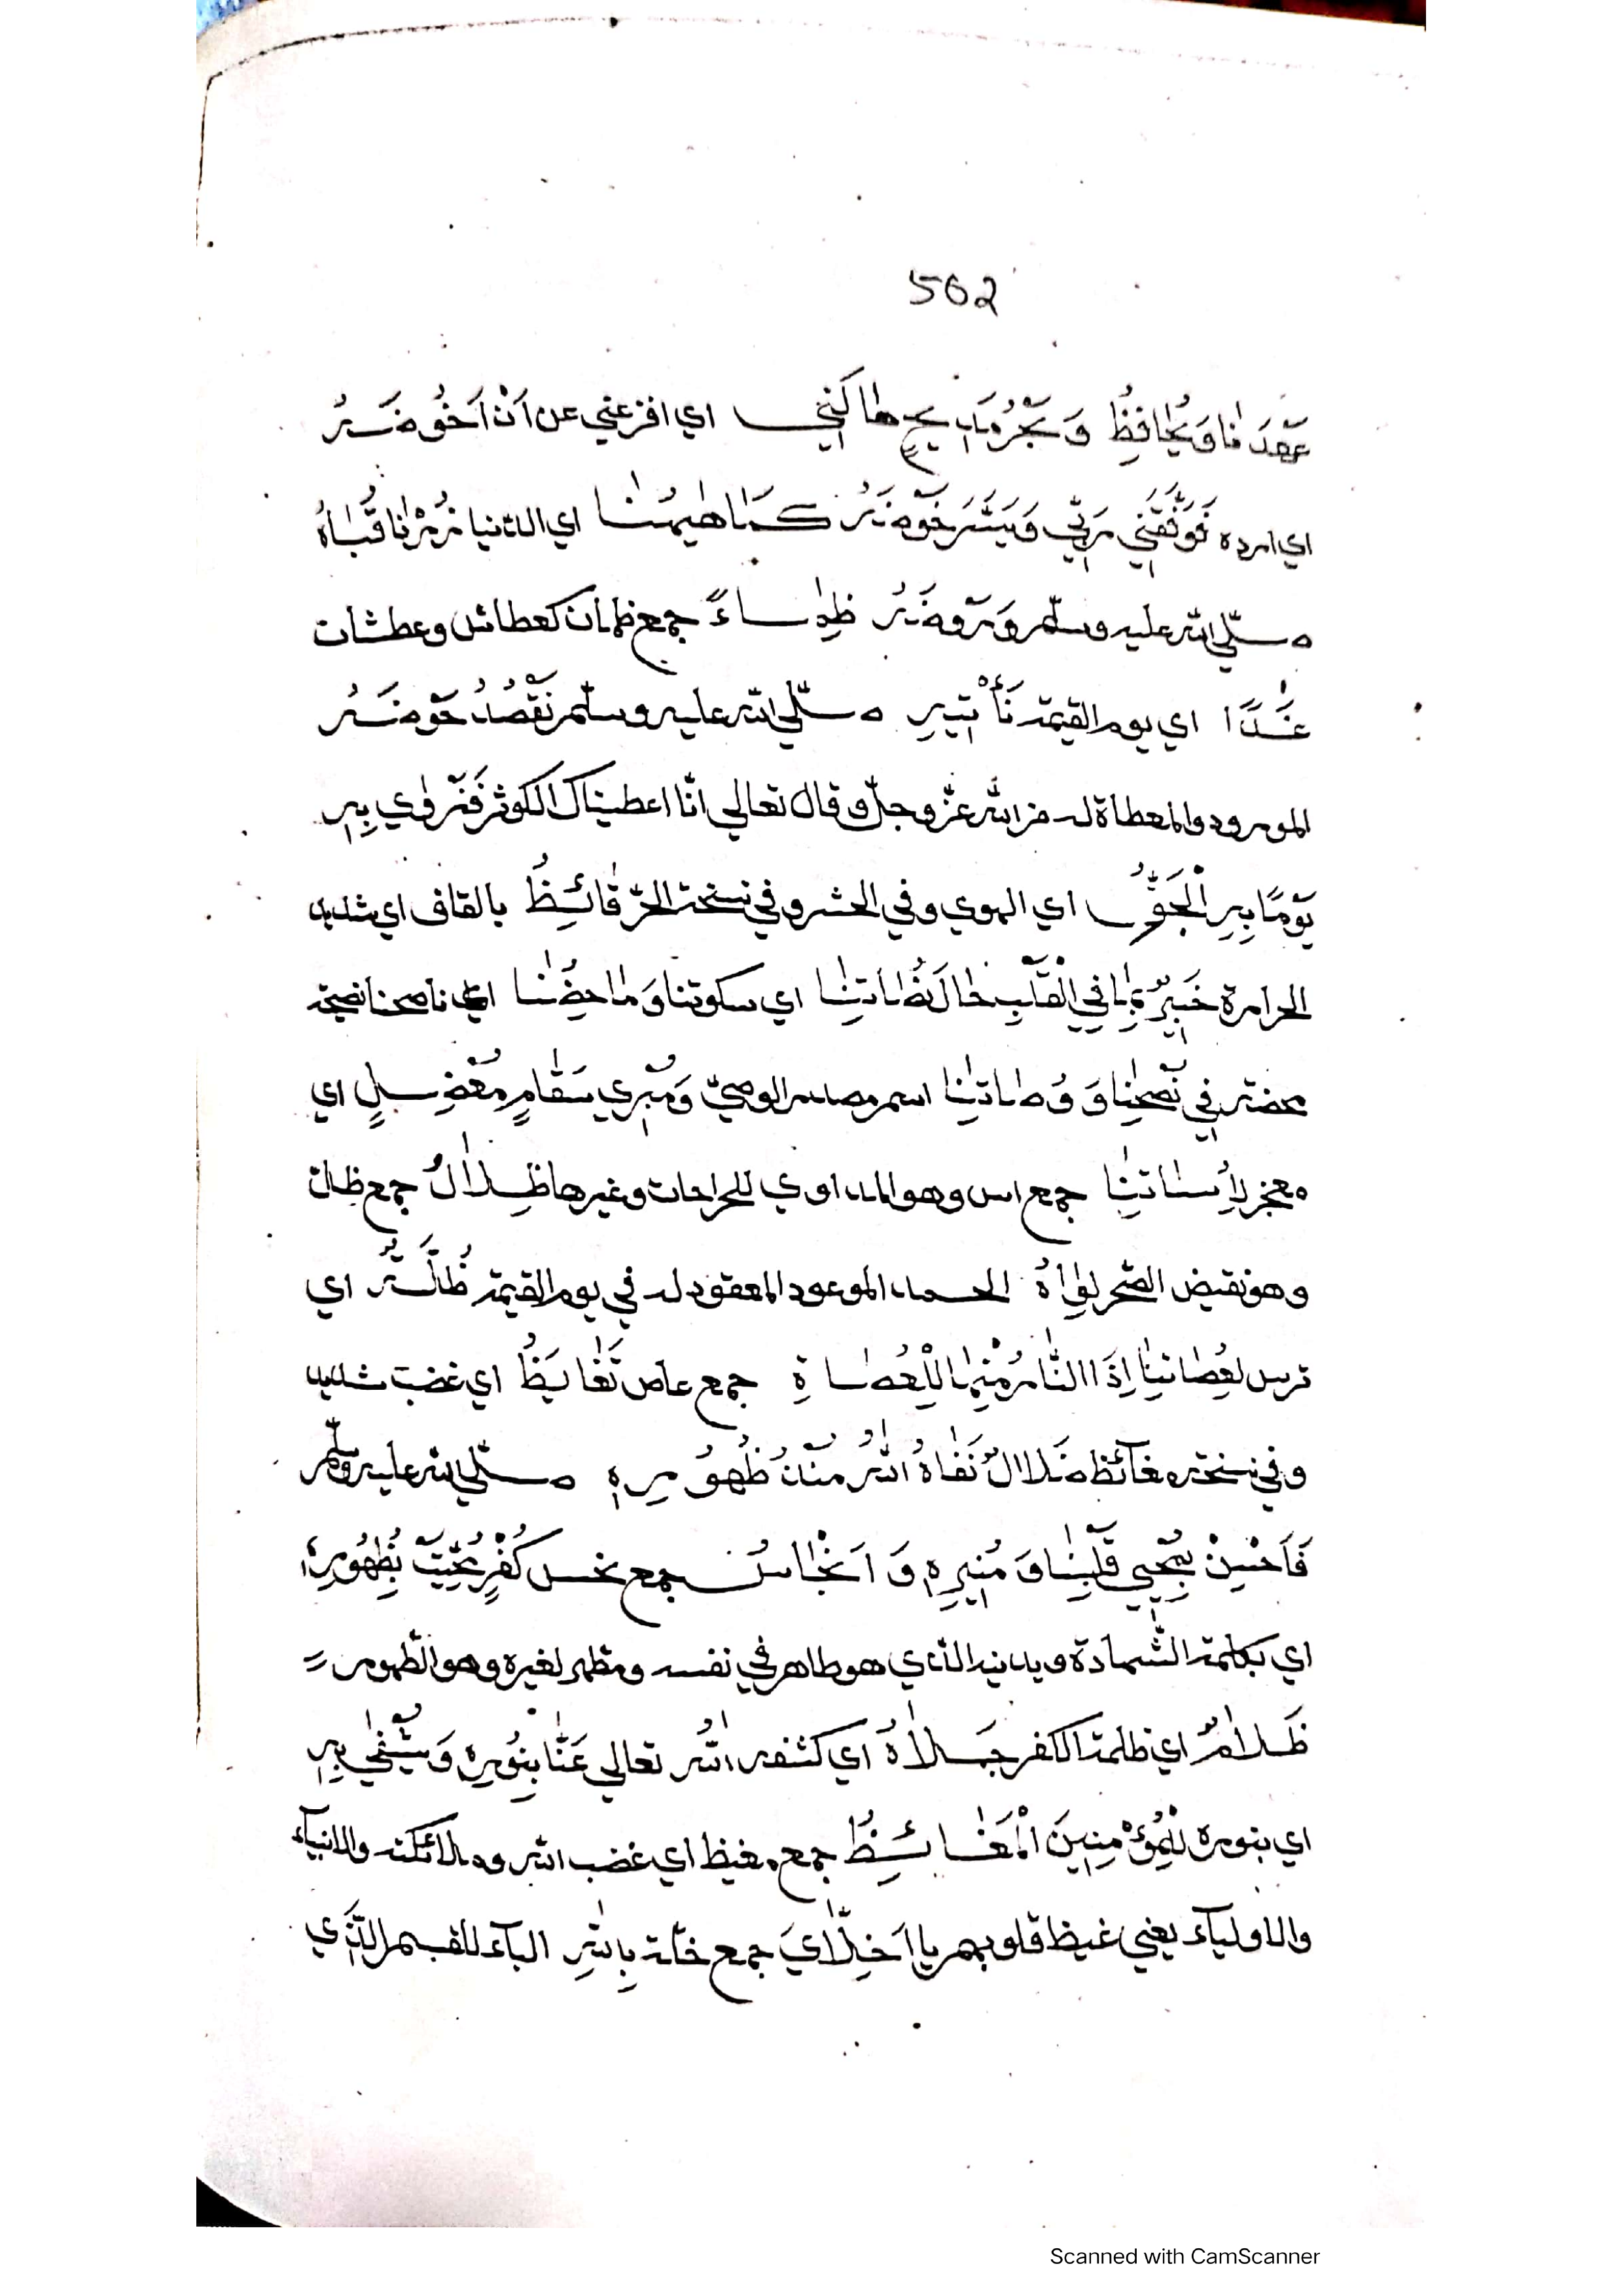 562
عَهْدَنَا وَيُحَافِظُ وَبَحْرُ مَدِيحٍ هَالَنِي اي افزعني عن اَنْ اَخُوضَهُ
اي ارده فَوَفَّقَنِي رَبِّي وَيَسَّرَ خَوْضَهُ كَمَا هِيمُنَا اي الدّنيا زُرْنَا قُبَاهُ
صلّي الله عليه وسلّم وَرَوْضَهُ ظِمَاءً جمع ظمان كعطاش وعطشان
غَدًا اي يوم القيمة نَأْتِيهِ صلّي الله عليه وسلّم نَقْصُدُ حَوْضَهُ
المورود والمعطاة له من الله عزّ وجلّ وقال تعالي انّا اعطيناك الكوثر فَنَرْوِي بِهِ
يَوْمًا بِهِ الْجَوُّ اي الهوي وفي الحشر وفي نسخة الحرّ قَائِظُ بالقاف اي شديد
الحرارة خَبِيرٌ بِمَا فِي الْقَلْبِ حَالَ اي سكوتنا وَمَاحِضُنَا اي ناصحنا نصيحة
محضة فِي نُصْحِنَا وَوُصَاتِنَا اسم مصدر الوصيّ وَمُبْرِي سَقَامٍ مُعْضِلٍ اي
معجز لِأُسَاتِنَا جمع اس وهو المداوي للجراحات وغيرها ظِلَالٌ جمع ظلّ
وهو نقيض الضّح لِوَاهُ الحمد الموعود المعقود له في يوم القيمة ظُلَّةٌ اي
ترس لِعُصَاتِنَا اِذَا النَّارُ مِنْهَا لِلْعُصَاةِ جمع عاص تَغَايَظُ اي غضب شديد
وفي نسخة مغآئظ ضَلَالٌ نَفَاهُ اللهُ مُنْذُ ظُهُورِهِ صلّي الله عليه وسلّم
فَاَحْسِنْ بِمُحْيِي قَلْبِنَا وَمُنِيرِهِ وَاَنْجَاسُ جمع نجس كُفْرٍ مُحِيَتْ بِطَهُورِهِ
اي بكلمة الشّهادة ودينه الذي هو طاهر في نفسه ومطهر لغيره وهو الطّهور
ظَلَامٌ اي ظلمة الكفر جَلَاهُ اي كشفه اللهُ تعالي عَنَّا بِنُورِهِ وَيُشْفَى بِهِ
اي بنوره لِلْمُؤْمِنِينَ الْمَغَائِظُ جمع مغيظ اي غضب الله وملائكته والانبيآء
والاوليآء يعني غيظ قلوبهم يا اَخِلَّايَ جمع خلّة بِاللهِ البآء للقسم الَّذِي
Scanned with CamScanner